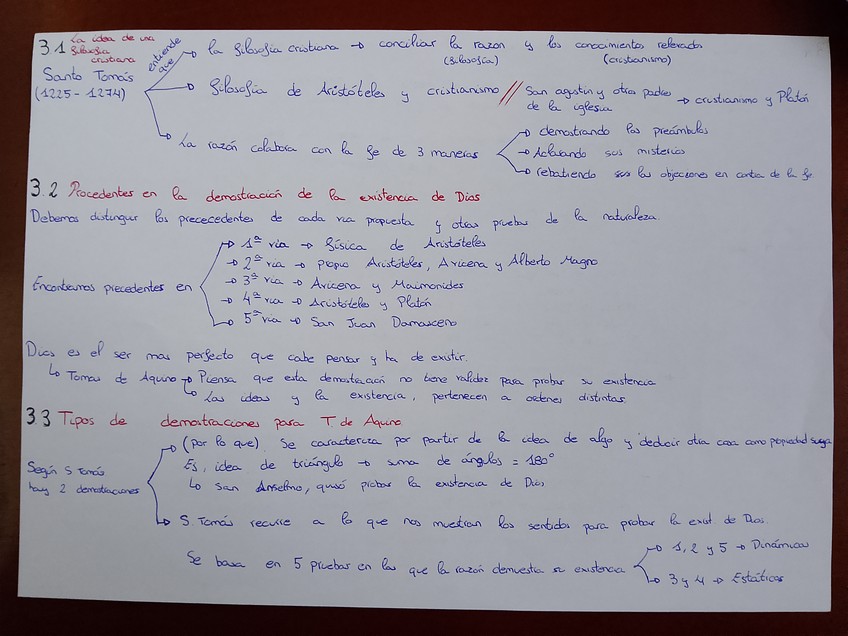 3.1 La idea de una filosofía cristiana
Santo Tomás
(1225 - 1274)
entiende que
la filosofía cristiana → conciliar la razón y los conocimientos revelados
(filosofía) (cristianismo)
filosofía de Aristóteles y cristianismo // San agustín y otros padres de la iglesia → cristianismo y Platón
La razón colabora con la fe de 3 maneras
→ demostrando los preámbulos
→ Aclarando sus misterios
→ rebatiendo las objeciones en contra de la fe
3.2 Procedentes en la demostración de la existencia de Dios
Debemos distinguir los prececedentes de cada via propuesta y otras pruebas de la naturaleza.
Encontramos precedentes en
→ 1ª via → física de Aristóteles
→ 2ª via → propio Aristóteles, Avicena y Alberto Magno
→ 3ª via → Avicena y Maimonides
→ 4ª via → Aristóteles y Platón
→ 5ª via → San Juan Damasceno
Dios es el ser mas perfecto que cabe pensar y ha de existir.
↳ Tomas de Aquino → Piensa que esta demostración no tiene validez para probar su existencia
↳ Las ideas y la existencia, pertenecen a ordenes distintas.
3.3 Tipos de demostraciones para T. de Aquino.
Según S Tomás
hay 2 demostraciones
→ (por lo que). Se caracteriza por partir de la idea de algo y deducir otra cosa como propiedad suya
Ej, idea de triángulo → suma de ángulos = 180°
↳ San Anselmo, quisó probar la existencia de Dios
→ S. Tomás recurre a lo que nos muestran los sentidos para probar la exist de Dios.
Se basa en 5 pruebas en las que la razón demuestra su existencia
→ 1, 2 y 5 → Dinámicas
→ 3 y 4 → Estáticas